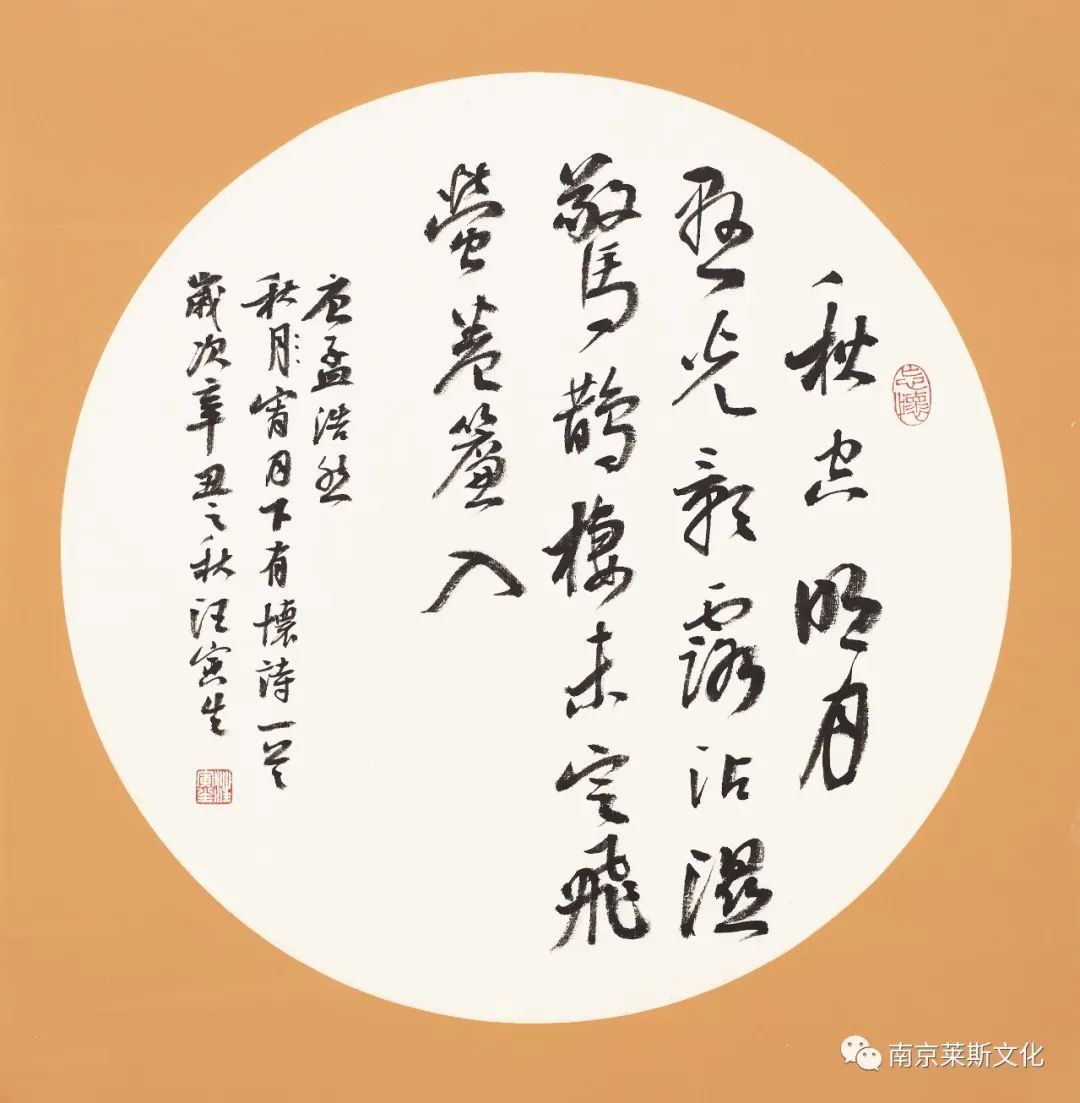 忘懷
秋空明月
懸光彩露沾濕
驚鵲棲未定飛
螢卷簾入
唐孟浩然
秋月宵月下有懷詩一首
歲次辛丑之秋汪寅生
汪寅生
南京莱斯文化